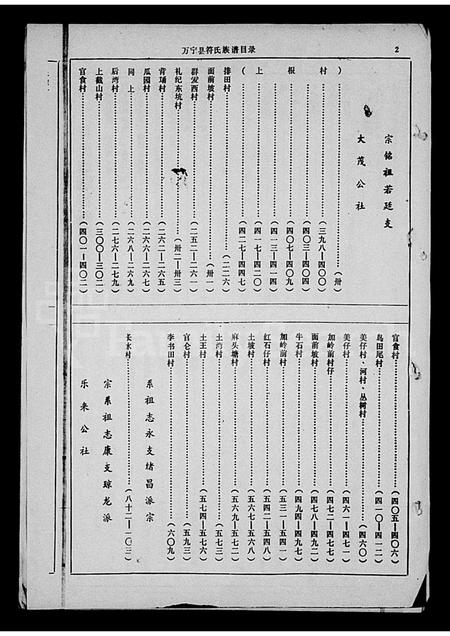 万宁县符氏族谱目录
2
宗铭祖若廷支
大茂公社
）……（卅）
村……（三九八—四〇〇）
……（四〇三—四〇四）
根……（四〇七—四〇九）
……（四一三—四一四）
上……（四一七—四二〇）
（……（四二七—四四七）
排田村……（二二六）
面前坡村……（卅一）
群爱西村……（二五二—二六一）
礼纪东坑村……（卅二—卅三）
青埇村……（二六二—二六五）
瓜园村……（二六六—二六七）
同上……（二六八—二六九）
后湾村……（二七六—二七九）
上截山村……（三〇〇—三〇二）
官食村……（四〇一—四〇二）
官食村……（四〇五—四〇六）
岛田尾村……（四一〇—四一二）
美仔村、河村、丛树村……（四六〇）
美仔村……（四六一—四七一）
加岭前村仔……（四七二—四七七）
面前坡村……（四七八—四九二）
牛石村……（四九四—四九七）
加岭前村……（五三一—五四一）
红石仔村……（五四二—五四八）
土坡村……（五六七—五六八）
麻头塘村……（五六九—五七二）
土湾村……（五七三）
土王村……（五七四—五七六）
官仑村……（五九三）
李书田村……（六〇九）
系祖志永支绪昌派宗
长水村……（八十二—一〇三）
宗系祖志康支琼龙派
乐来公社